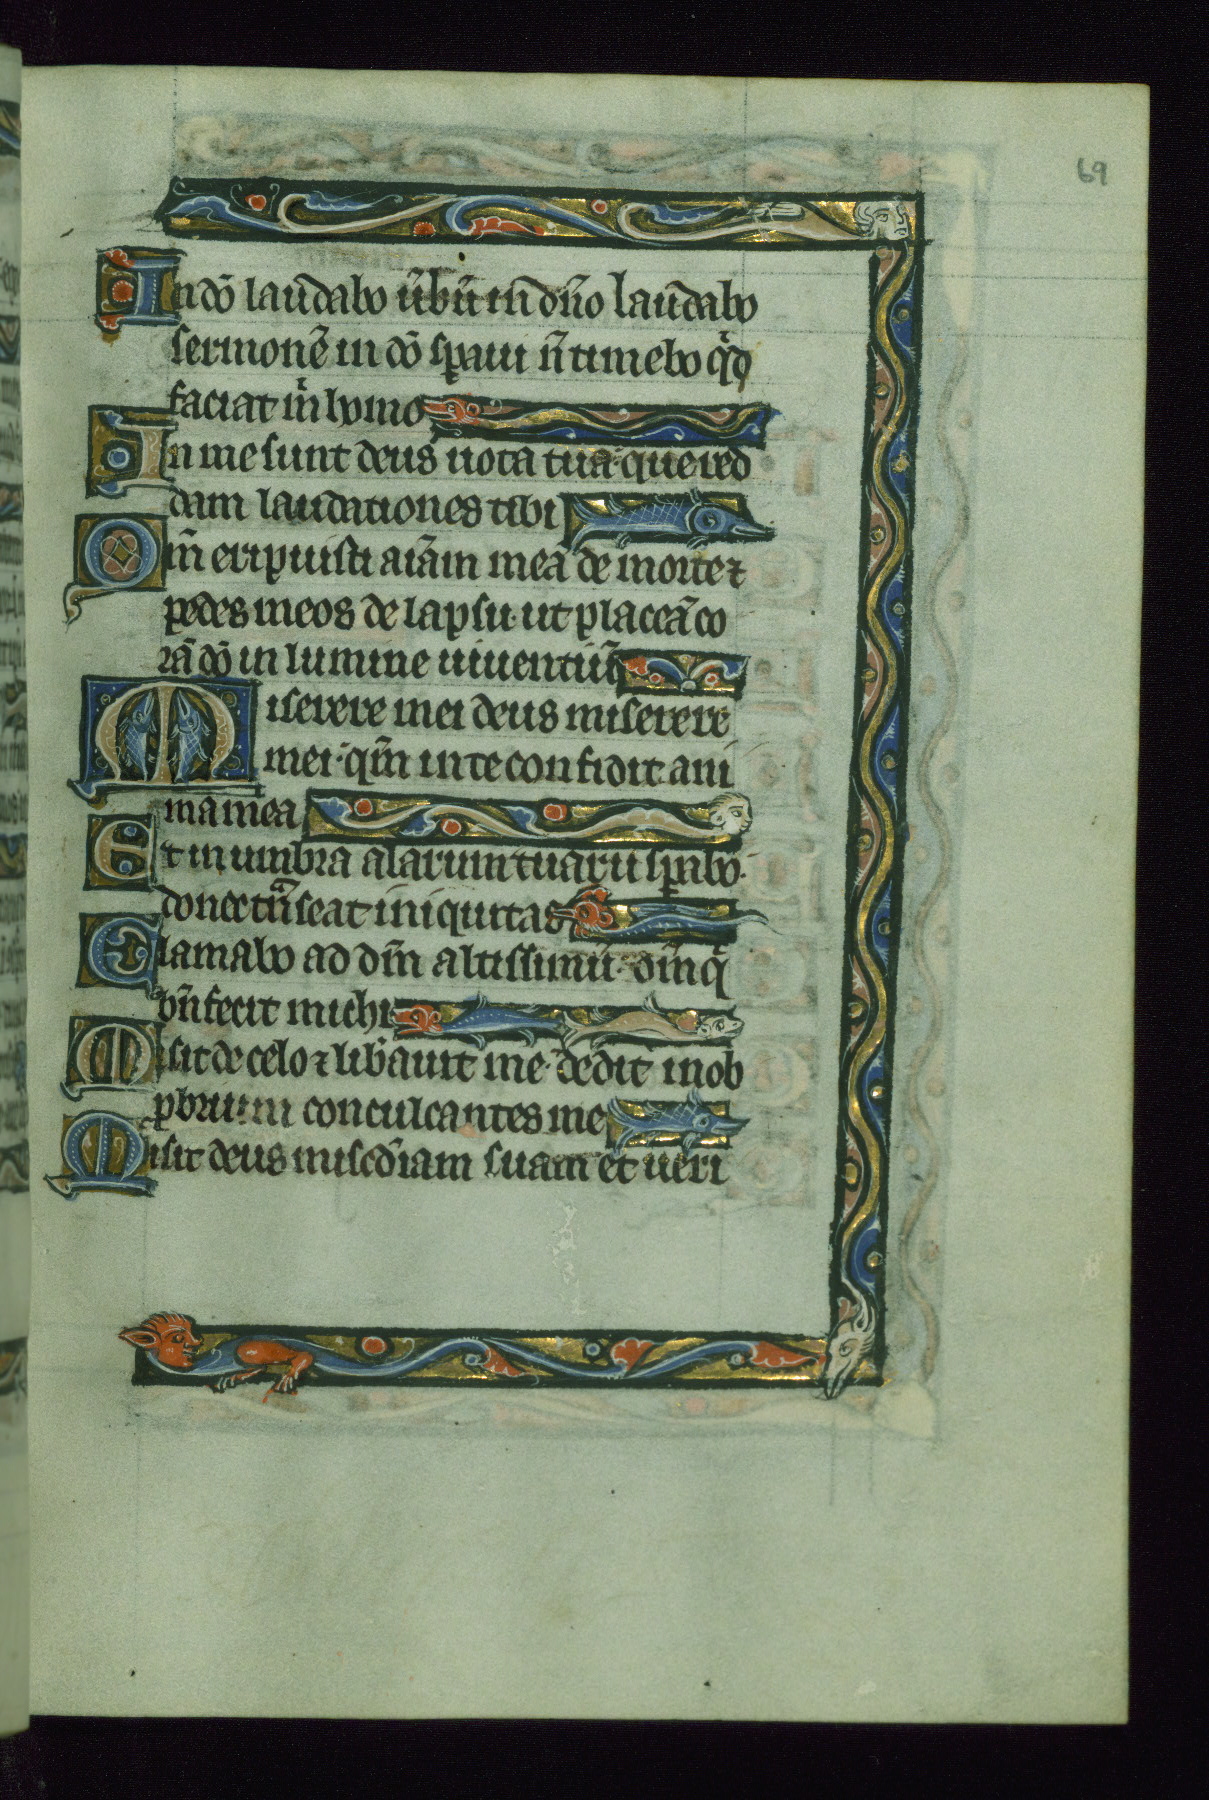 69
In dō laudabo ūbū in dn̄o laudabo
sermonē in dō sꝑaui n̄ timebo qͥd
faciat m̄ homo
In me sunt deus uota tua que red
dam laudationes tibi
Qm̄ eripuisti aīam meā de morte ⁊
pedes meos de lapsu ut placeā co
rā dō in lumine uiuentiū
Miserere mei deus miserere
mei qm̄ in te confidit ani
ma mea
Et in umbra alarum tuarū sꝑabo
donec tͣnseat iniquitas
Clamabo ad dm̄ altissimū dm̄ qͥ
bn̄fecit michi
Misit de celo ⁊ lib̄auit me dedit in ob
ꝓbrium conculcantes me
Misit deus misc̄diam suam et ueri